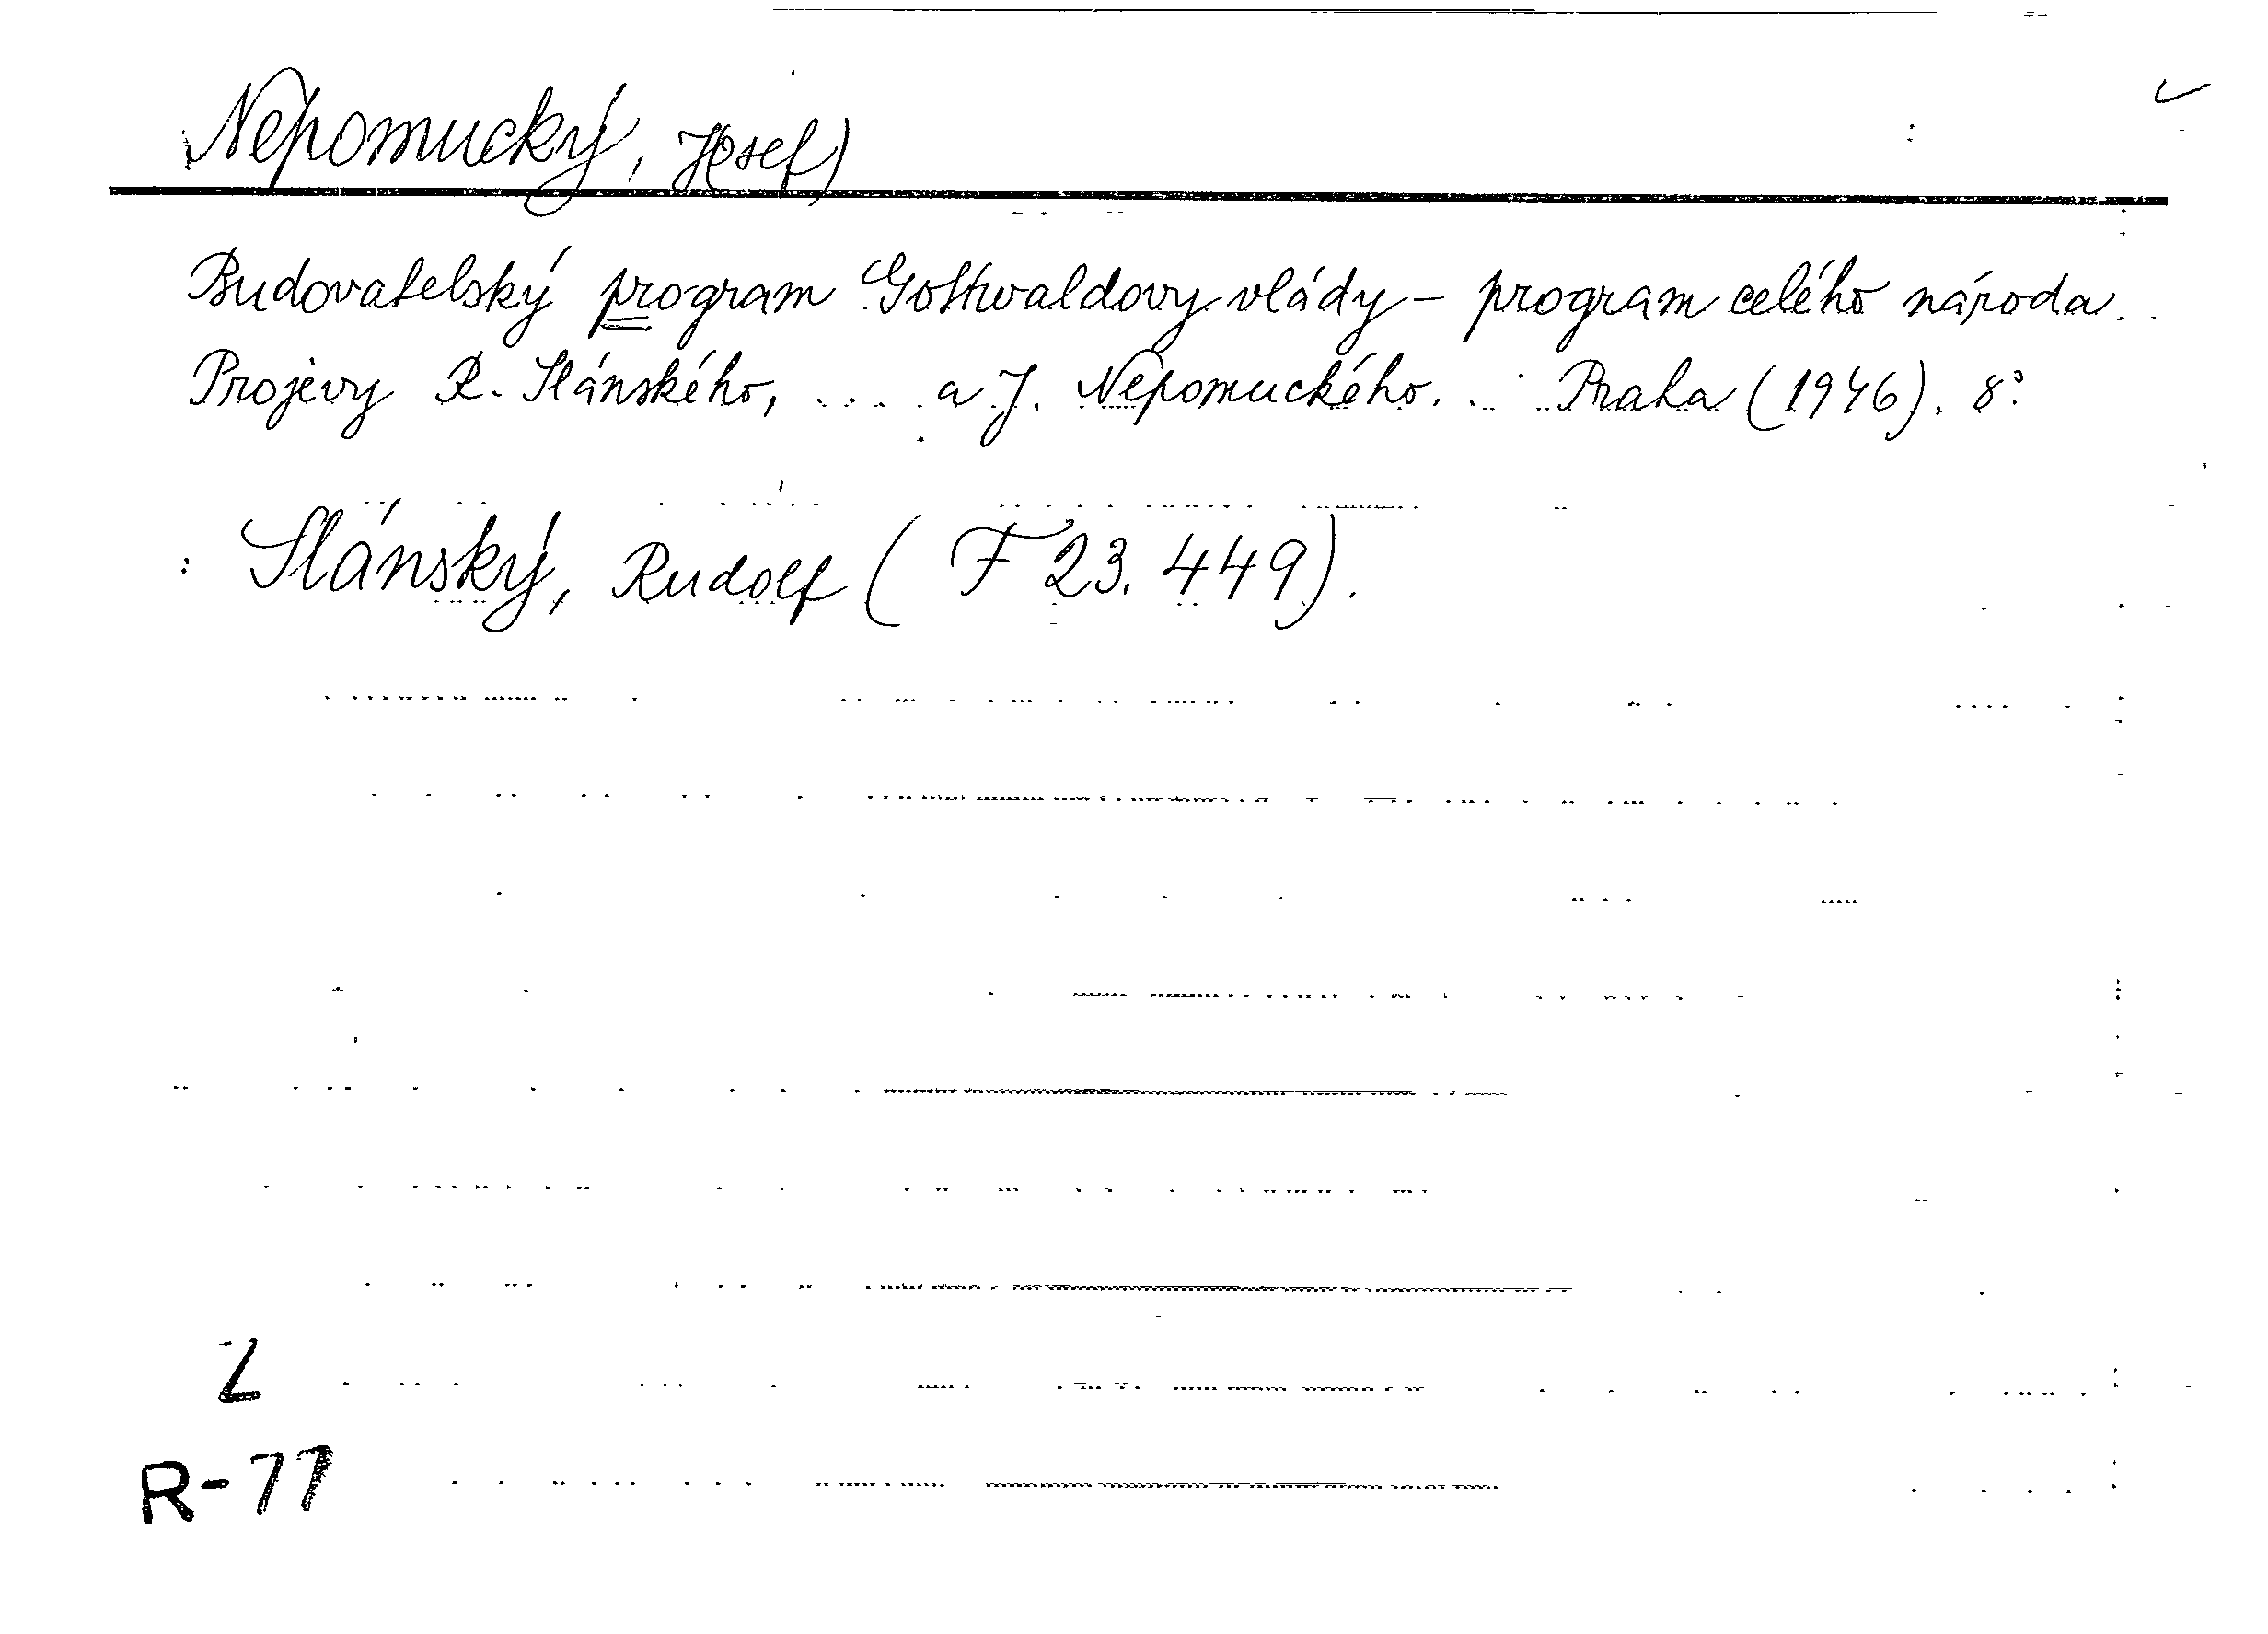 Nepomucký, J(osef)
Budovatelský program Gottwaldovy vlády – program celého národa.
Projevy R. Slánského, ... a J. Nepomuckého. Praha (1946). 8°
Slánský, Rudolf ( F 23.449).
Z
R-77